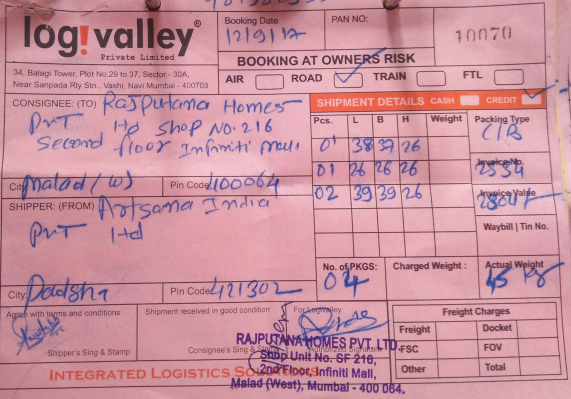 logivalley®
Private Limited
34, Balagi Tower, Plot No.29 to 37, Sector - 30A,
Near Sanpada Rly Stn., Vashi, Navi Mumbai - 400703
Booking Date
12/9/17
PAN NO:
10070
BOOKING AT OWNERS RISK
AIR ROAD TRAIN FTL
CONSIGNEE: (TO) Rajputana Homes
Pvt ltd Shop No. 216
Second floor Infiniti Mall
City Malad (W) Pin Code 400064
SHIPPER: (FROM) Artsana India
Pvt ltd
City: Pin Code 421302
SHIPMENT DETAILS CASH CREDIT
Pcs. L B H Weight Packing Type
01 38 37 26 C/B
Invoice No.
01 26 26 26 2534
Invoice Value
02 39 39 26
Waybill | Tin No.
No. of PKGS: Charged Weight : Actual Weight
04 45 kg
Agree with terms and conditions
Shipper's Sing & Stamp
Shipment received in good condition
Consignee's Sing & Stamp
For Logivalley
Authorized Signature
RAJPUTANA HOMES PVT. LTD.
Shop Unit No. SF 216,
2nd Floor, Infiniti Mall,
Malad (West), Mumbai - 400 064.
Freight Charges
Freight Docket
FSC FOV
Other Total
INTEGRATED LOGISTICS